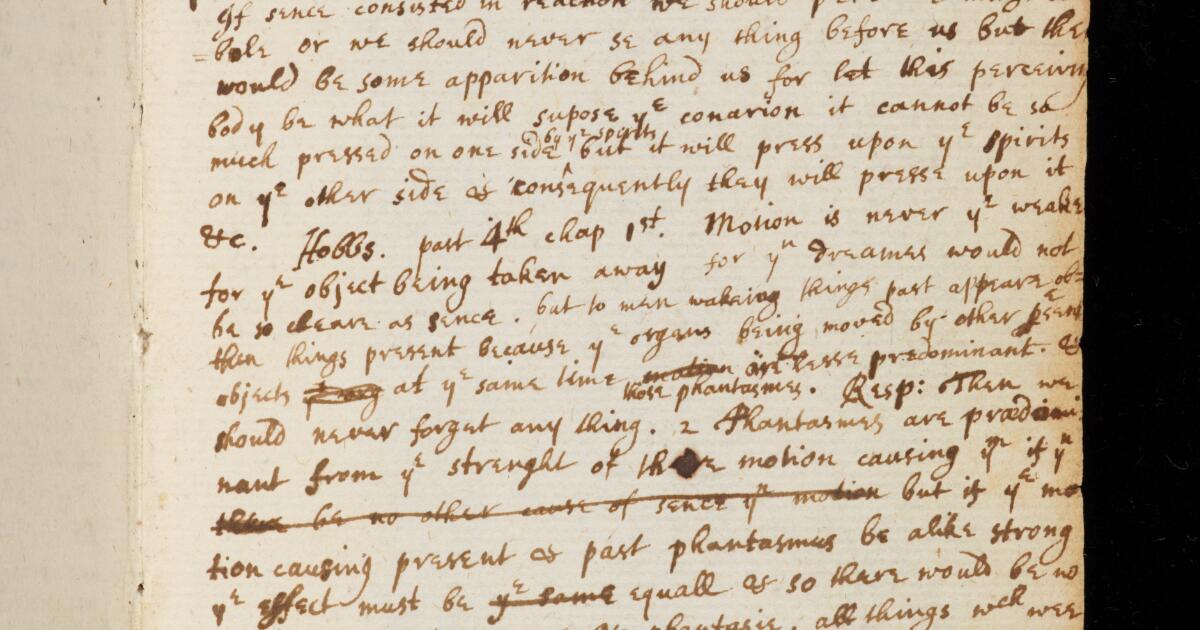 If sence consisted in reaction we should
=bole or we should never se any thing before us but the
would be some apparition behind us for let this perceivin
body be what it will supose yᵉ conarion it cannot be so
by yᵉ spirits
much pressed on one side ‸ but it will press upon yᵉ spirits
on yᵉ other side & consequently they will presse upon it
&c. Hobbs. part 4th chap 1st. Motion is never yᵉ weake
for yᵉ object being taken away for yⁿ dreames would not
be so cleare as sence. but to men wakeing things past appeare ob=
then things present because yᵉ organs being moved by other
objects at yᵉ same time motion are lesse predominant. &
those phantasmes. Resp: Then we
should never forget any thing. 2 Phantasmes are prædomi
nant from yᵉ strenght of motion causing yᵐ if yⁿ
there be no other cause of sence yⁿ motion but if yᵉ mo
tion causing present & past phantasmes be alike strong
yᵉ effect must be yᵉ same equall & so there would be no
phantasie. all things wch wee